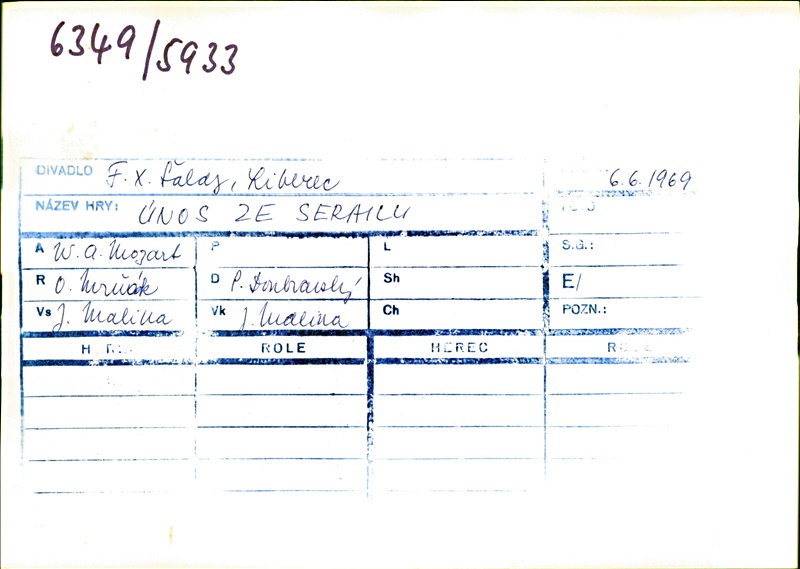 6349/5933
DIVADLO F. X. Šaldy, Liberec 6.6.1969
NÁZEV HRY: ÚNOS ZE SERAILU
A W. A. Mozart P L S.G.:
R O. Mrňák D P. Doubravský Sh E/
Vs J. Malina Vk J. Malina Ch POZN.:
ROLE HEREC